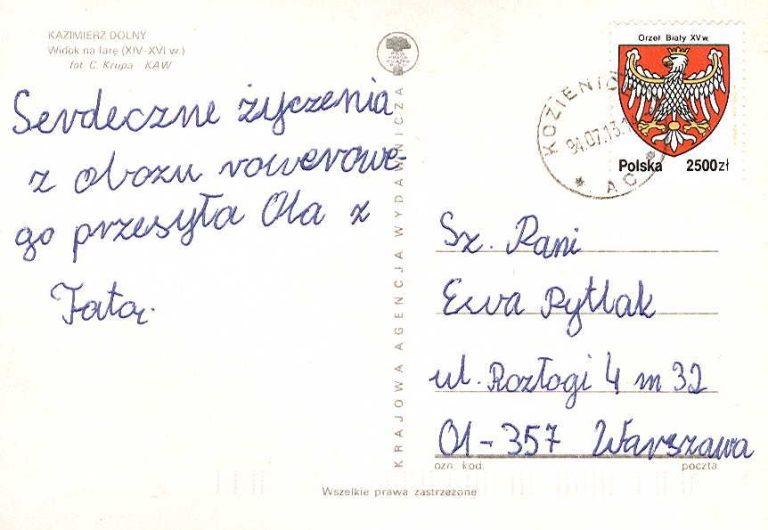 KAZIMIERZ DOLNY
Widok na farę (XIV-XVI w.)
fot. C. Krupa - KAW
Serdeczne życzenia
z obozu rowerowe-
go przesyła Ola z
Tatą.
KRAJOWA AGENCJA WYDAWNICZA
Orzeł Biały XV w.
Polska 2500zł
94.07.13
Sz. Pani
Ewa Pytlak
ul. Rozłogi 4 m 32
01-357 Warszawa
ozn. kod.
poczta
Wszelkie prawa zastrzeżone